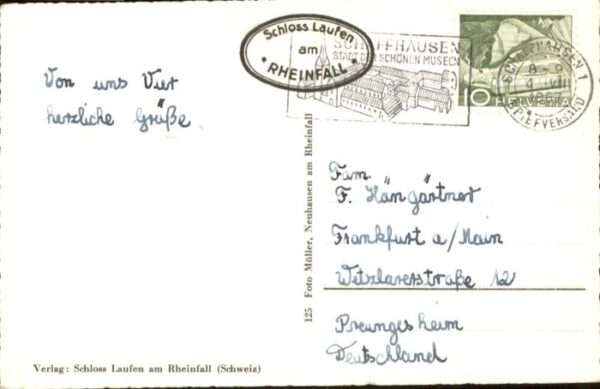 Schloss Laufen
am
• RHEINFALL •
SCHAFFHAUSEN
STADT DER SCHÖNEN MUSEEN
SCHAFFHAUSEN 1
8-9
VIII
BRIEFVERSAND
10 HELVETIA
Von uns Vier
herzliche Grüße.
Fam.
F. Hängärtner
Frankfurt a/Main
Wetzlarerstraße 12
Preungesheim
Deutschland
125 Foto Müller, Neuhausen am Rheinfall
Verlag: Schloss Laufen am Rheinfall (Schweiz)